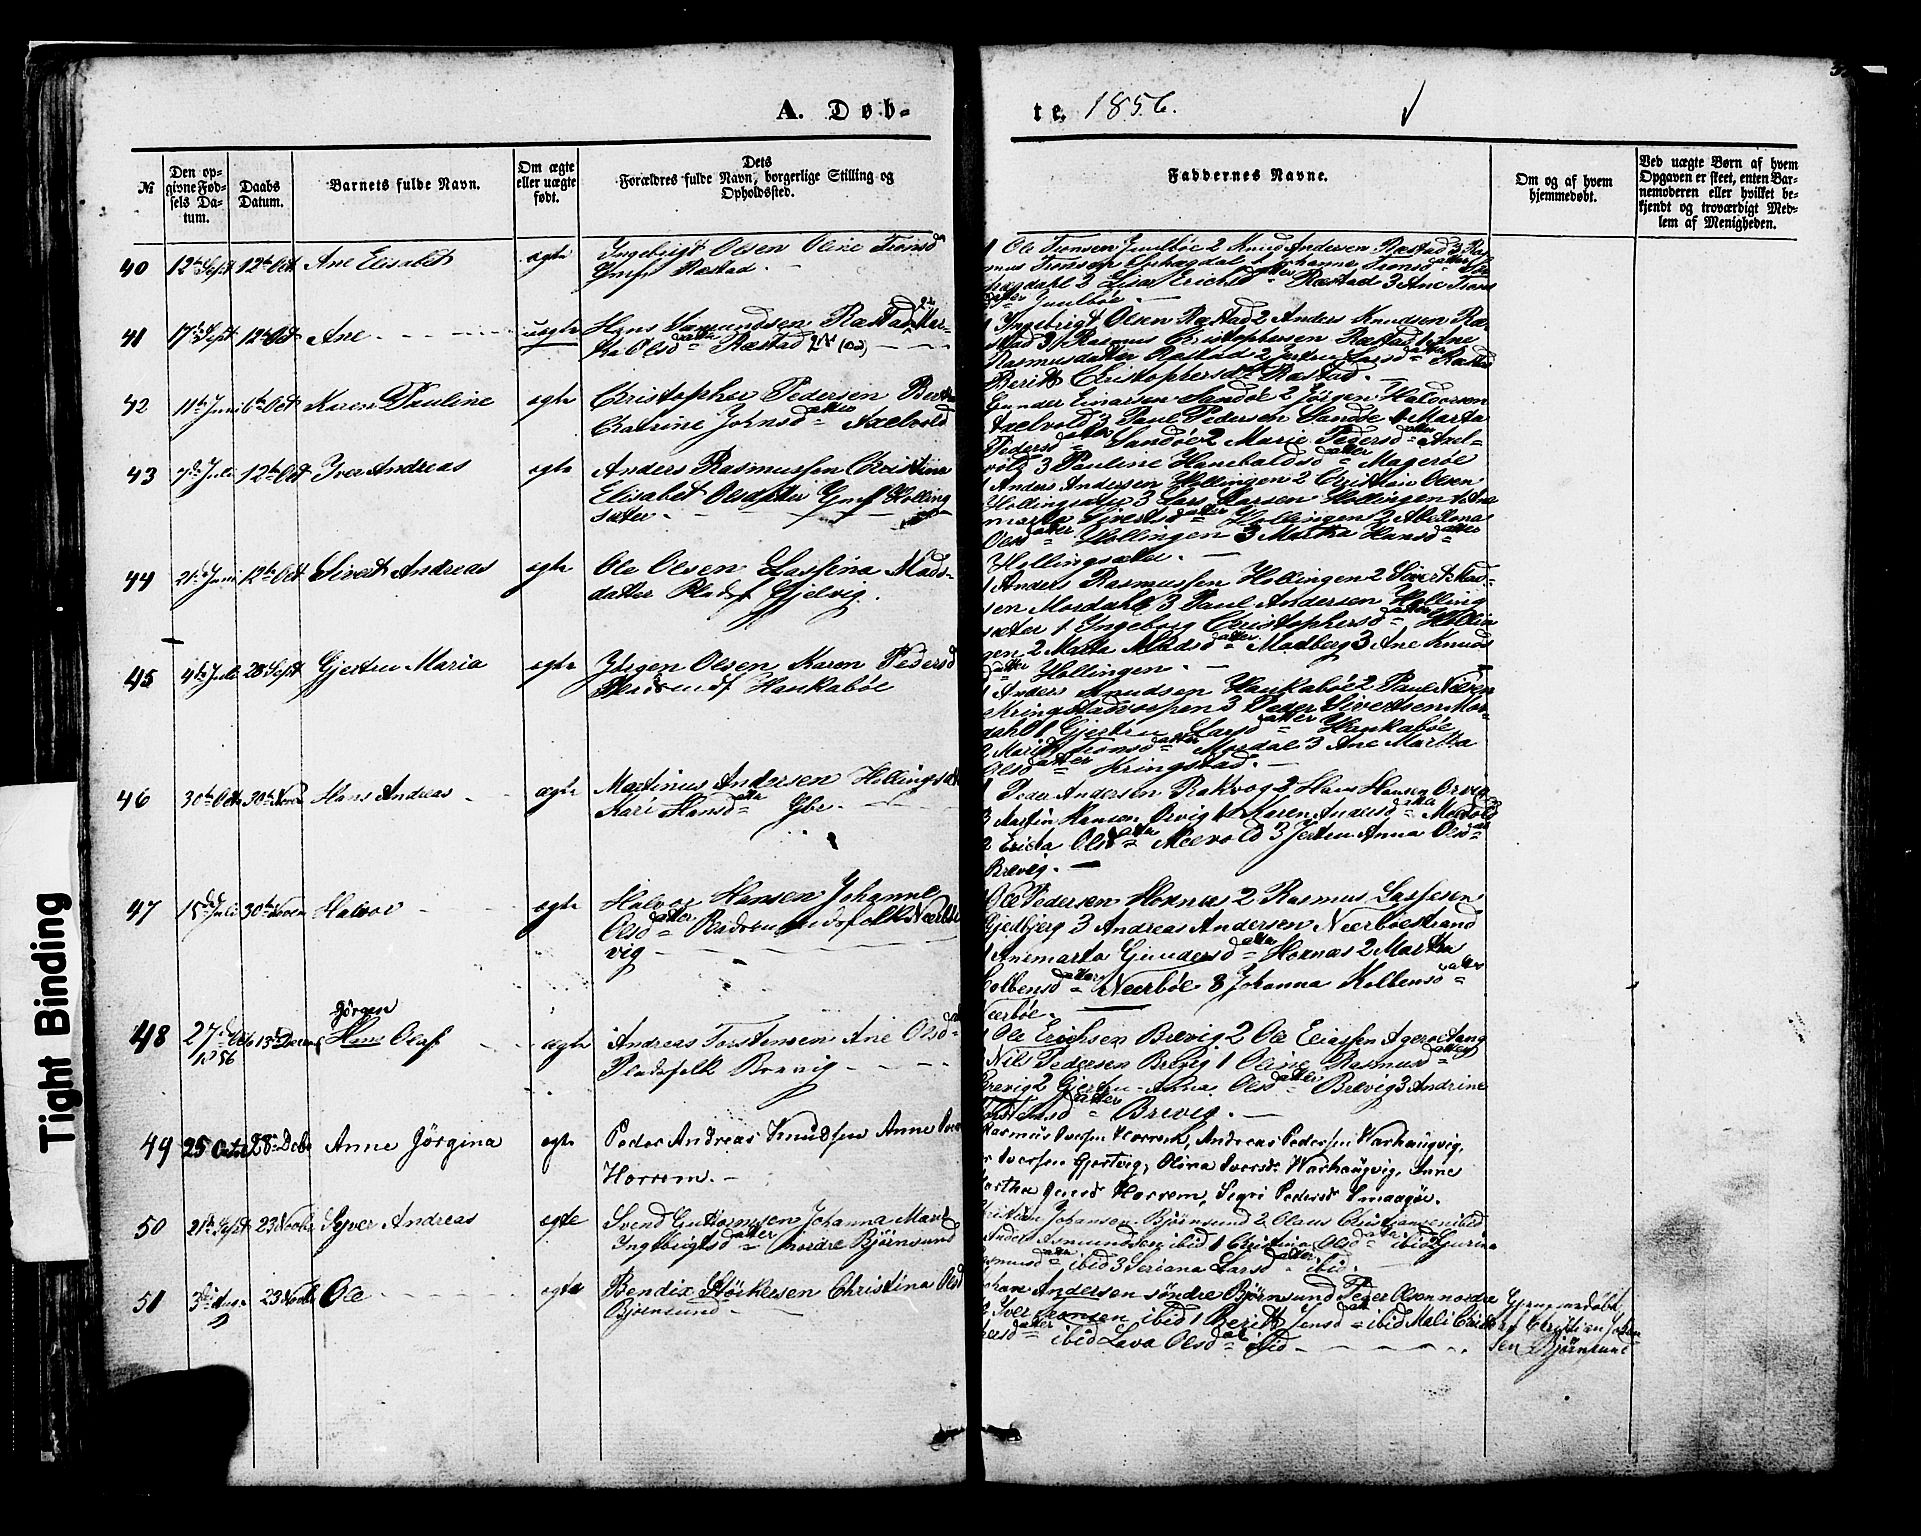 A. Døb-
te, 1856.
№
Den op-
givne Fød-
sels Da-
tum.
Daabs
Datum.
Barnets fulde Navn.
Om ægte
eller uægte
født.
Dets
Forældres fulde Navn, borgerlige Stilling og
Opholdssted.
Faddernes Navne.
Om og af hvem
hjemmedøbt.
Ved uægte Børn af hvem
Opgaven er skeet, enten Bar-
nemoderen eller hvilket be-
kjendt og troværdigt Med-
lem af Menigheden.
40 12te Sept 12te Oct Ane Elisabet ægte Ingebrigt Olsen Oline Tronsd
Ræstad
1 Ole Tronsen Juulbøe 2 Knud Andersen Ræstad 3 Ras-
mus Tronsen 1 Johanne Tronsdatter
2 Lisa Erichsdatter Ræstad 3 Ane Trons
datter Juulbøe
41 17de Sept 12te Oct Ane uægte Hans Samundsen Ræstad Mar-
tha Olsdatter Ræstad
1 Ingebrigt Olsen Ræstad 2 Anders Knudsen Ræ-
stad 3 Rasmus Christophersen Ræstad 1 Ane
Rasmusdatter Ræstad 2 Larsdatter Ræstad
Berith Christophersd Ræstad
42 11te Juni 6te Oct Karen Pauline ægte Christopher Pedersen Berth
Catrine Johnsdatter Axelvold
Gunder Einarsen Sandøe 2 Jørgen Halvorsen
Axelvold 3 Paul Pedersen Sandøe 1 Marta
Pedersdatter Sandøe 2 Marie Pedersdatter Axel-
vold 3 Pauline Hanebaldsdatter Magerøe
43 7de Juli 12te Oct Iver Andreas ægte Anders Rasmussen Christine
Elisabet Olsdatter Holling
sæter
1 Anders Andersen Hollingen 2 Christian Olsen
Hollingsæter 3 Lars Larsen Hollingen 1 Ane
marta Sivertsdatter Hollingen 2 Abelona
Olsdatter Hollingen 3 Martha Hansdatter
Hollingsæter
44 21de Juni 12te Oct Sivert Andreas ægte Ole Olsen Lassina Mads-
datter Pladsf Gjelvig.
1 Anders Rasmussen Hollingen 2 Sivert Mad-
sen Mordahl 3 Paul Andersen Holling
sæter 1 Ingeborg Christophersdatter Hollin
gen 2 Marta Madsdatter Madberg 3 Ane Knuds
datter Hollingen
45 4de Juli 28 Sept Gjertru Maria ægte Jørgen Olsen Karen Pedersd
Haukabøe
1 Anders Knudsen Haukabøe 2 Paul Nilsen
3 Peder Sivertsen Mor-
dahl 1 Gjertru Larsdatter Haukabøe
2 Marith Tronsdatter Mordal 3 Ane Martha
Olsdatter Kringstad.
46 30te Octr 30te Novr Hans Andreas ægte Martinus Andersen Hollingsæt
Kari Hansdatter
1 Peder Andersen Røkvog 2 Hans Hansen Orvig
3 Martin Hansen Orvig 1 Karen Andersdatter Meevold
2 Ericta Olsdatter Meevold 3 Jertru Anna Olsdatter
Brevig.
47 15de Juli 30te Novem Halvor ægte Halvor Hansen Johanne
Olsdatter Neerbøe
vig
Ole Pedersen Hornæs 2 Rasmus Lassesen
Gjedbjerg 3 Andreas Andersen Neerbøestrand
1 Anemarta Gundersdatter Hornæs 2 Martha
Colbensdatter Neerbøe 3 Johanna Kolbensdatter
Neerbøe.
48 27de Octb 1856 13de Decem Jørgen
Hans Olaf ægte Andreas Torstensen Ane Olsdatter
Pladsfolk Brevig
1 Ole Erichsen Brevig 2 Ole Eliassen Agerøetang
Nils Pedersen Brevig 1 Oline Rasmusdatter
Brevig 2 Gjertru-Anna Olsdatter Brevig 3 Andrine
Torstensdatter Brevig.
49 25 Octbr 28de Decbr Anne Jørgina ægte Peder Andreas Knudsen Anne Ivers
Horrem.
Rasmus Iversen Horrem, Andreas Pedersen Warhaugvig,
Iversen Gjortvig, Olina Iversdr Warhaugvig, Anne
Martha Jensd Horrem, Sigri Pedersd Smaagøe.
50 21de Sept 23 Novbr Syver Andreas ægte Svend Guttormsen Johanna Marit
Ingebrigtsdatter nordre Bjørnsund
Christian Johansen Bjørnsund 2 Olaus Christiansen ibid
Anders Asmundsen ibid 1 Christina Olsdatter ibid 2 Gurina
Asmundsdatter ibid 3 Seriana Larsdatter ibid.
51 3de Aug. 23 Novbr Ole ægte Bendix Størkersen Christina Olsd
Bjørnsund
Johan Andersen søndre Bjørnsund Peder Olsen nordre
Iver Jensen ibid 1 Berith Jensdatter ibid Mali Christo
phersdatter ibid Lava Olsdatter ibid
Hjemmedøbt
af Christian Johan
sen Bjørnsund
Tight Binding